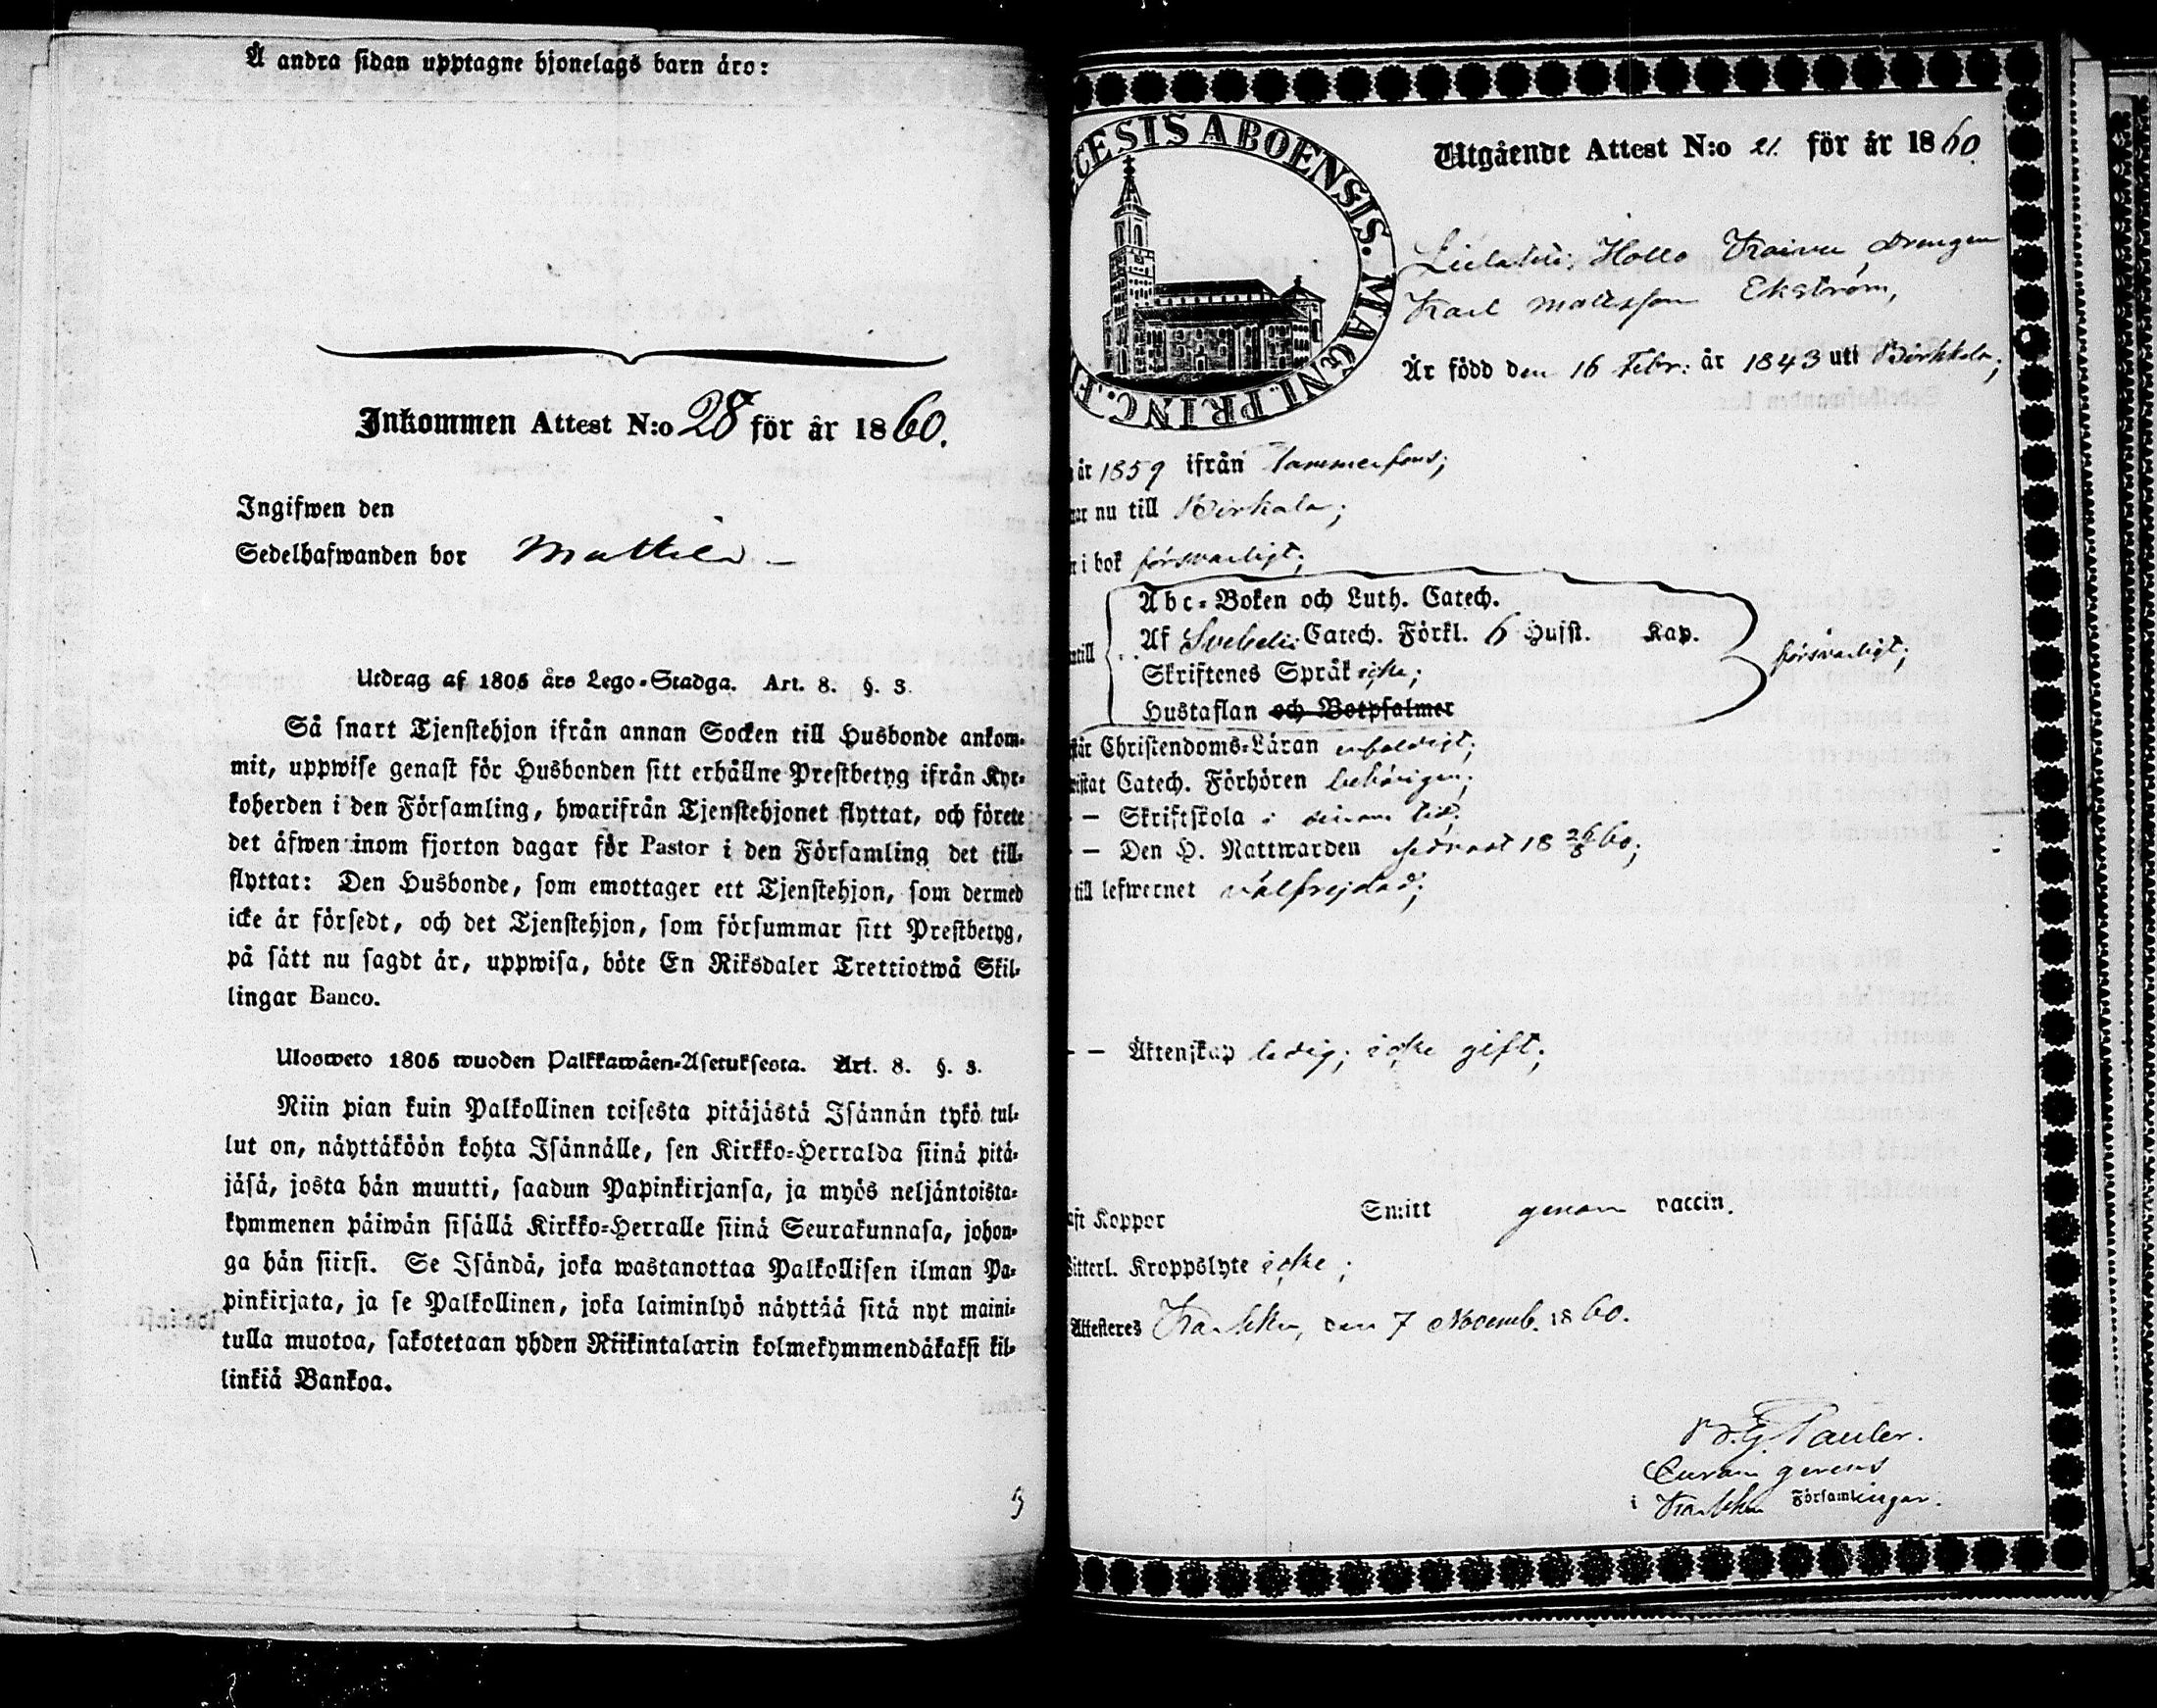 Å andra sidan upptagne hjonelags barn äro:
Inkommen Attest N:o 28 för år 1860.
Ingifwen den
Sedelhafwanden bor Mattila
Utdrag af 1805 års Lego-Stadga. Art. 8. §. 3.
Så snart Tjenstehjon ifrån annan Socken till Husbonde ankom-
mit, uppwise genast för Husbonden sitt erhållne Prestbetyg ifrån Kyr-
koherden i den Församling, hwarifrån Tjenstehjonet flyttat, och förete
det äfwen inom fjorton dagar för Pastor i den Församling det till-
flyttat: Den Husbonde, som emottager ett Tjenstehjon, som dermed
icke är försedt, och det Tjenstehjon, som försummar sitt Prestbetyg,
på sätt nu sagdt är, uppwisa, böte En Riksdaler Trettiotwå Skil-
lingar Banco.
Ulosweto 1805 wuoden Palkkawäen-Asetuksesta. Art. 8. §. 3.
Niin pian kuin Palkollinen toisesta pitäjästä Isännän tykö tul-
lut on, näyttäköön kohta Isännälle, sen Kirkko-Herralda siinä pitä-
jäsä, josta hän muutti, saadun Papinkirjansa, ja myös neljäntoista-
kymmenen päiwän sisällä Kirkko-Herralle siinä Seurakunnasa, johon-
ga hän siirsi. Se Isändä, joka wastanottaa Palkollisen ilman Pa-
pinkirjata, ja se Palkollinen, joka laiminlyö näyttää sitä nyt maini-
tulla muotoa, sakotetaan yhden Riikintalarin kolmekymmendäkaksi kil-
linkiä Bankoa.
CESIS ABOENSIS. MAGNI. PRINC. FI
Utgående Attest N:o 21. för år 1860.
Hollo drengen
Karl Mattsson Ekström,
Är född den 16 Febr: år 1843 uti Birkkala;
år 1859 ifrån Tammerfors;
nu till Birkala;
i bok försvarligt;
Abc-Boken och Luth. Catech.
till Af Svebelii Catech. Förkl. 6 Hufst. Kap. försvarligt;
Skriftenes Språk icke;
Hustaflan och Botpsalmer
Christendoms-Läran enfaldigt;
Catech. Förhören behörigen;
– – Skriftskola i sinom tid;
– – Den H. Nattwarden sednast 18 26/8 60;
till lefwernet välfrejdad;
– – Äktenskap ledig; icke gift;
Koppor Smitt genom vaccin.
Witterl. Kroppslyte icke;
Attesteres Karkku, den 7 Novemb. 1860.
Pauler.
Curam gerens
i Karkku Församlingar.